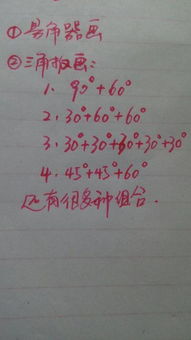 ①量角器画
②三角板画:
1. 90°+60°
2. 30°+60°+60°
3. 30°+30°+30°+30°+30°
4. 45°+45°+60°
还有很多种组合.